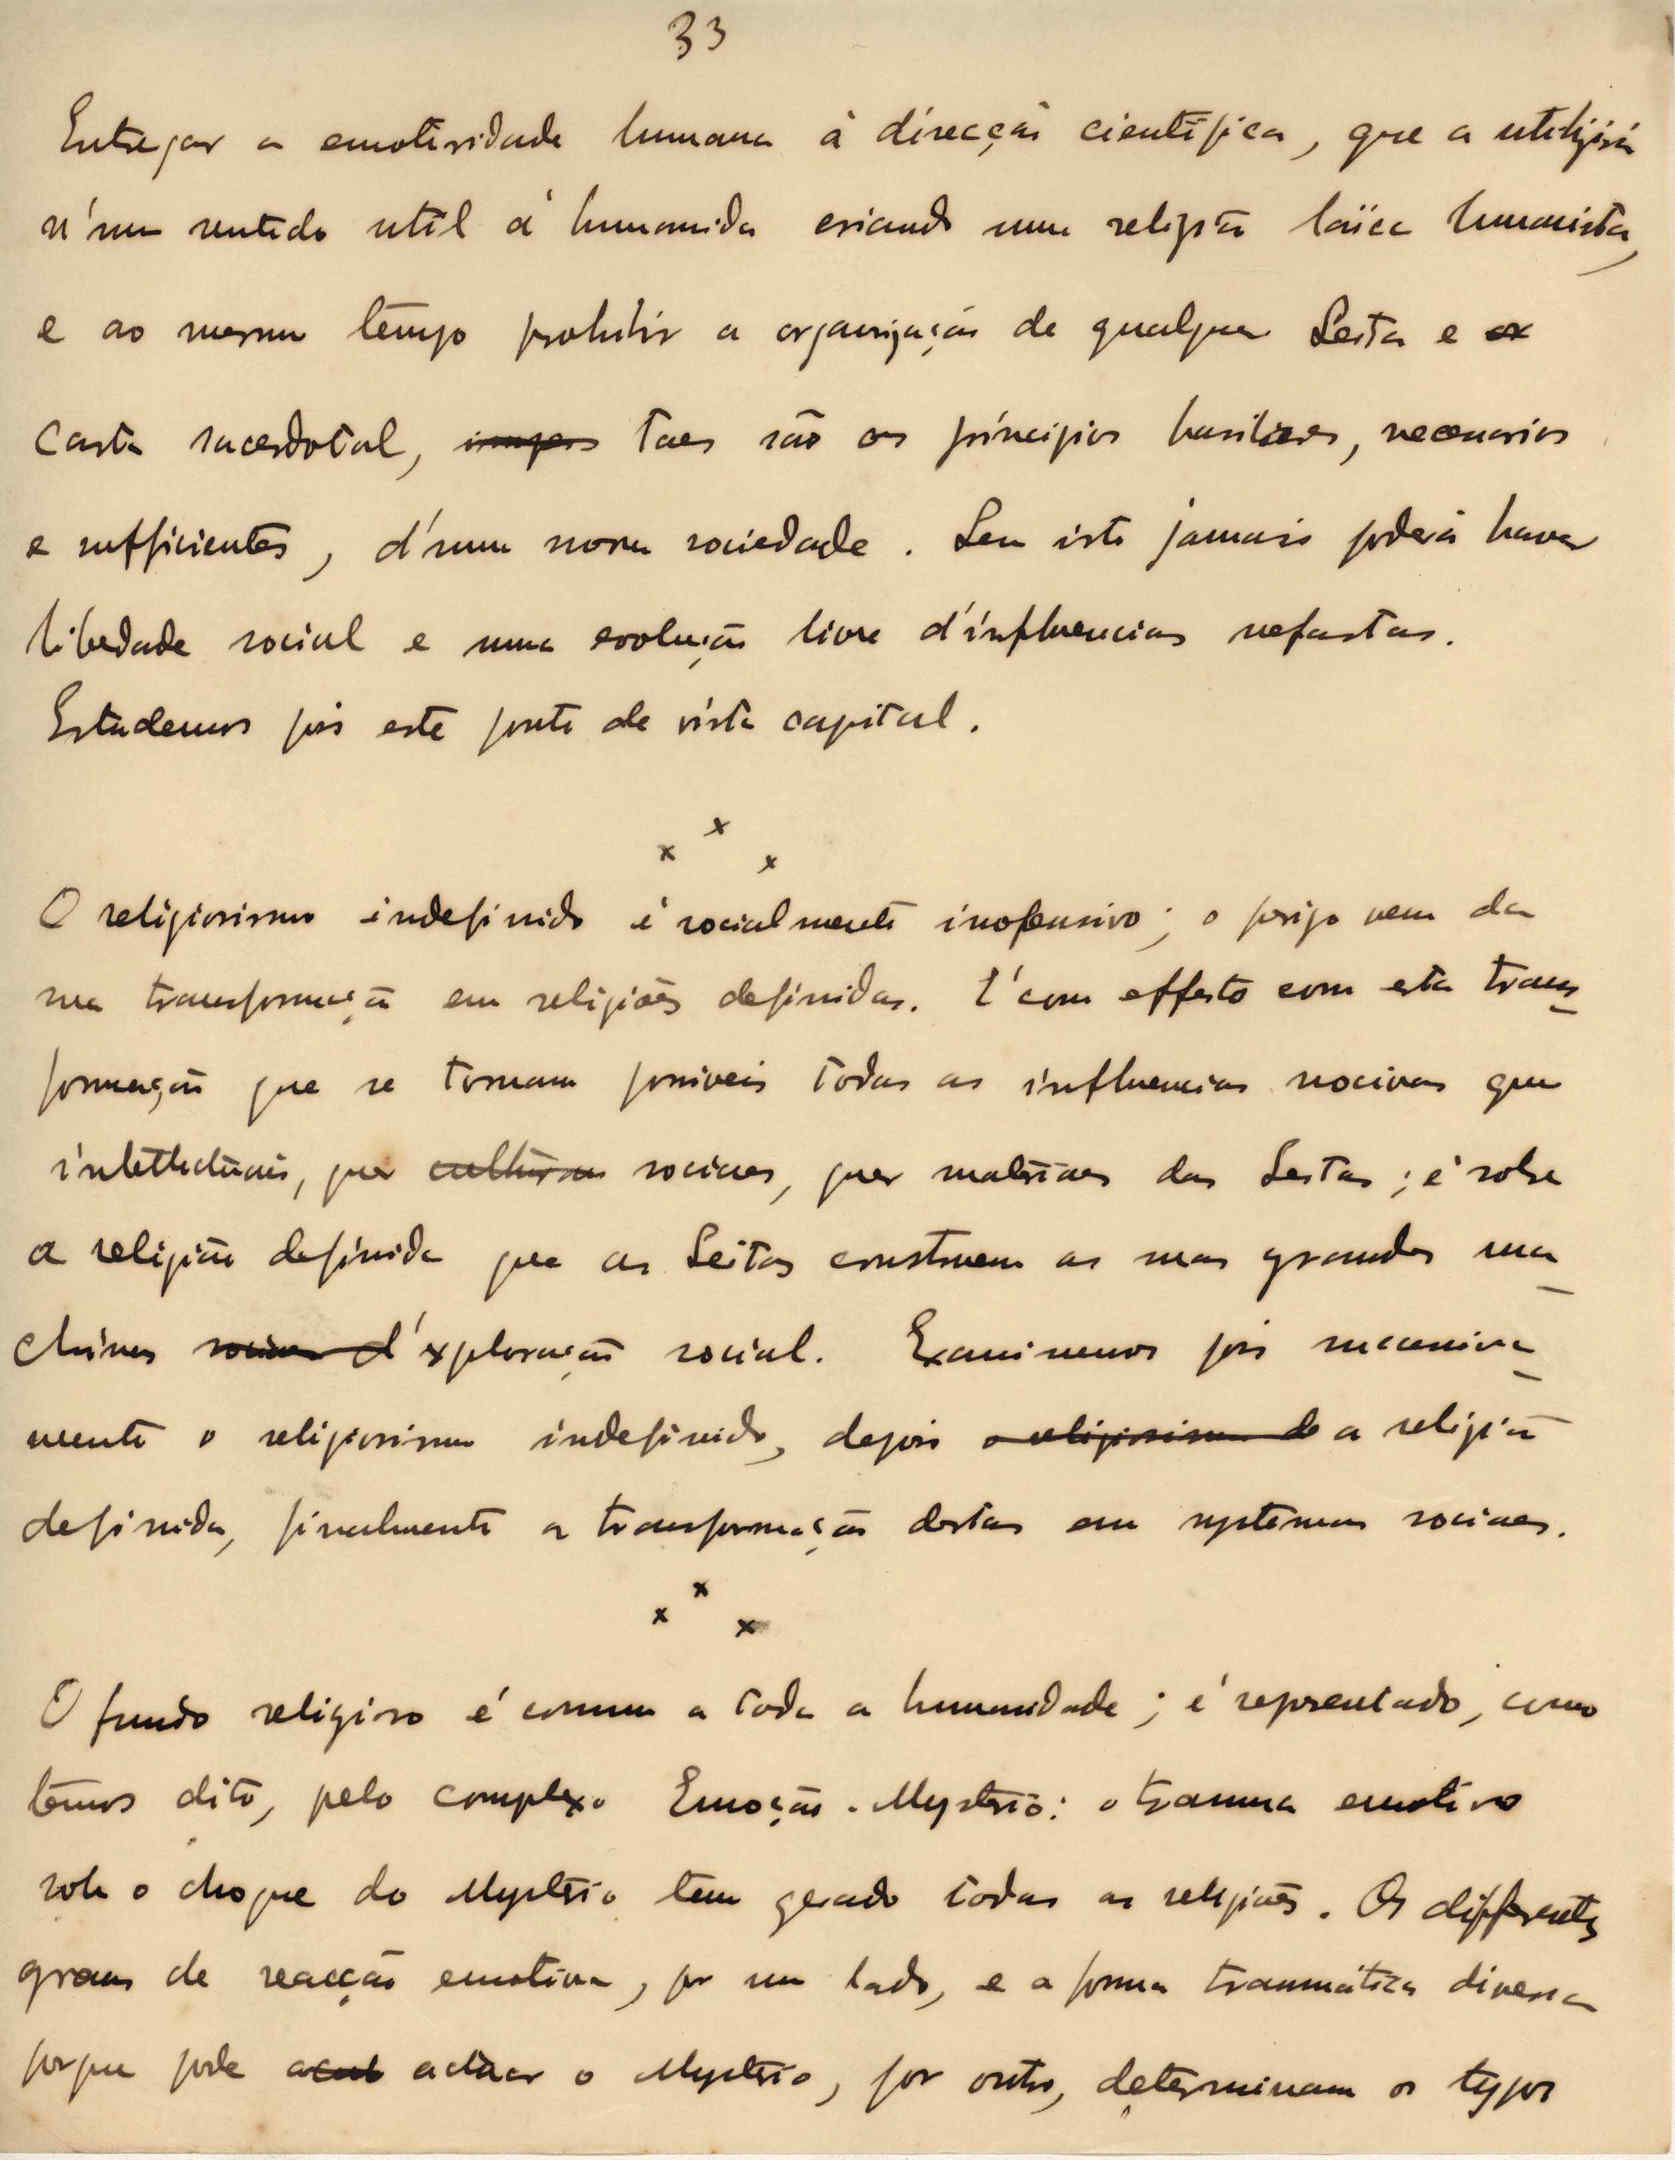 33
Entregar a emotividade humana á direcção cientifica, que a utilizará
n'um sentido util á humanida criando uma religião laïca humanista,
e ao mesmo tempo prohibir a organização de qualquer Seita e
casta sacerdotal, taes são os principios basilares, necessarios
e sufficientes, d'uma nova sociedade. Sem isto jamais poderá haver
liberdade social e uma evolução livre d'influencias nefastas.
Estudemos pois este ponto de vista capital.
x x x
O religiosismo indefinido é socialmente inofensivo; o perigo vem da
sua transformação em religiões definidas. É com effeito com esta trans-
formação que se tornam possiveis todas as influencias nocivas quer
intellectuais, quer culturaes sociaes, quer materiaes das Seitas; é sobre
a religião definida que as Seitas construem as suas grandes ma-
chinas sociaes d'exploração social. Examinemos pois successiva-
mente o religiosismo indefinido, depois o religiosismo de a religião
definida, finalmente a transformação destas em systemas sociaes.
x x x
O fundo religioso é comum a toda a humanidade; é representado, como
temos dito, pelo complexo Emoção-Mysterio: o trauma emotivo
sob o choque do Mysterio tem gerado todas as religiões. Os differentes
graus de reacção emotiva, por um lado, e a forma traumática diversa
porque pode actuar o Mysterio, por outro, determinam os typos